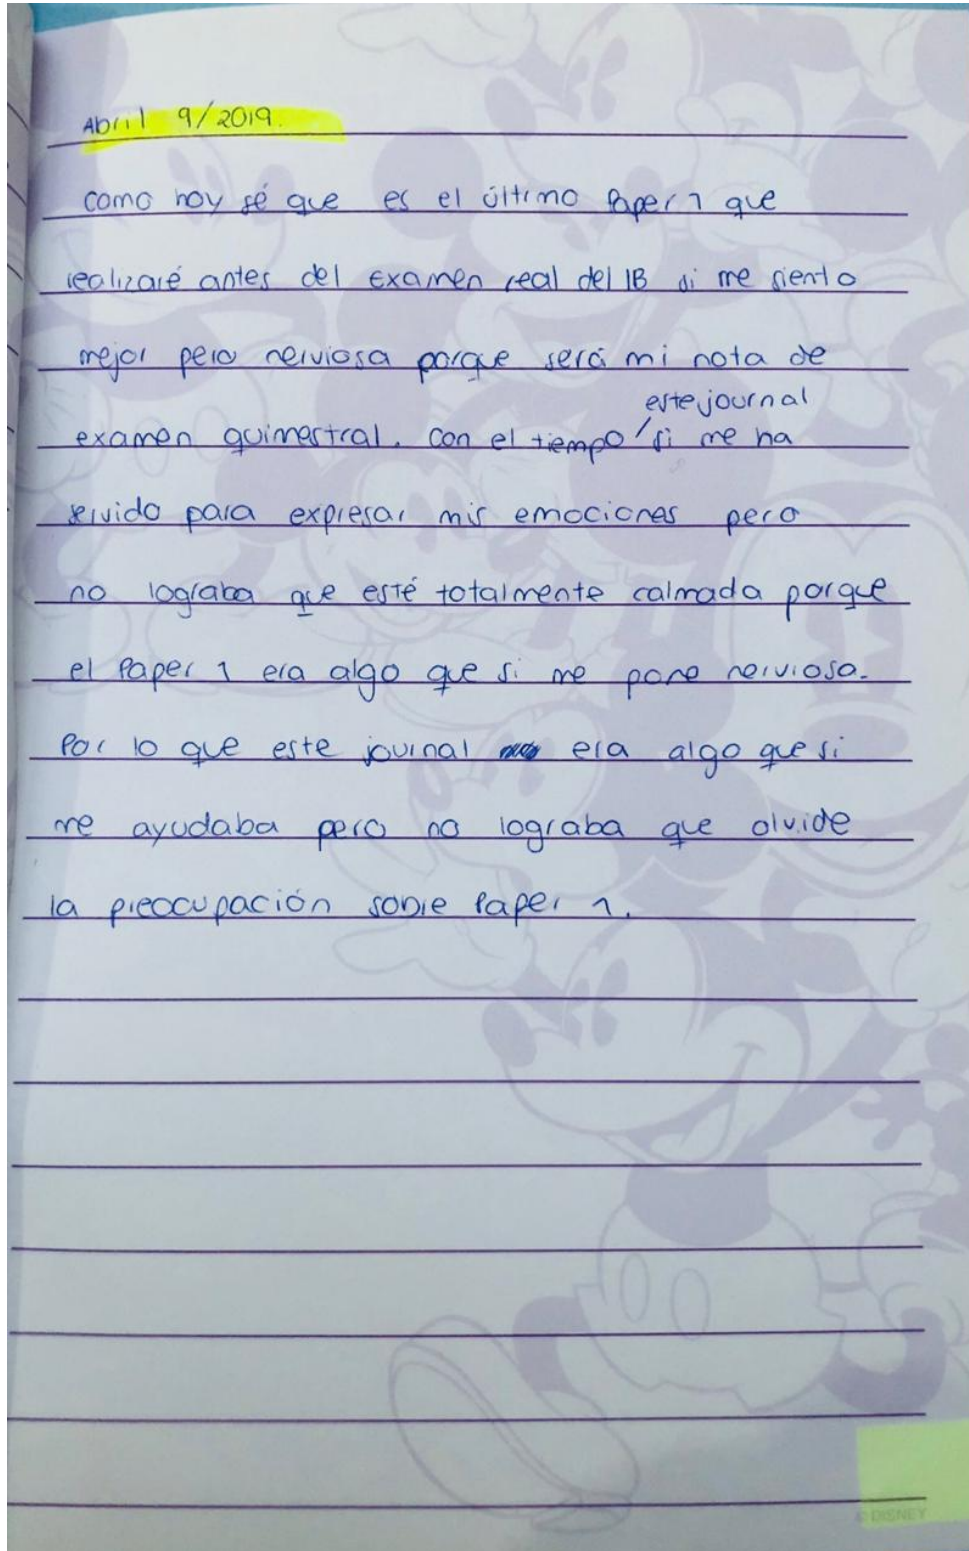 Abril 9/2019.
como hoy sé que es el último Paper 1 que
realizaré antes del examen real del IB si me siento
mejor pero nerviosa porque será mi nota de
este journal
examen quimestral. Con el tiempo / si me ha
servido para expresar mis emociones pero
no lograba que esté totalmente calmada porque
el Paper 1 era algo que si me pone nerviosa.
Por lo que este journal era algo que si
me ayudaba pero no lograba que olvide
la preocupación sobre Paper 1.
© DISNEY